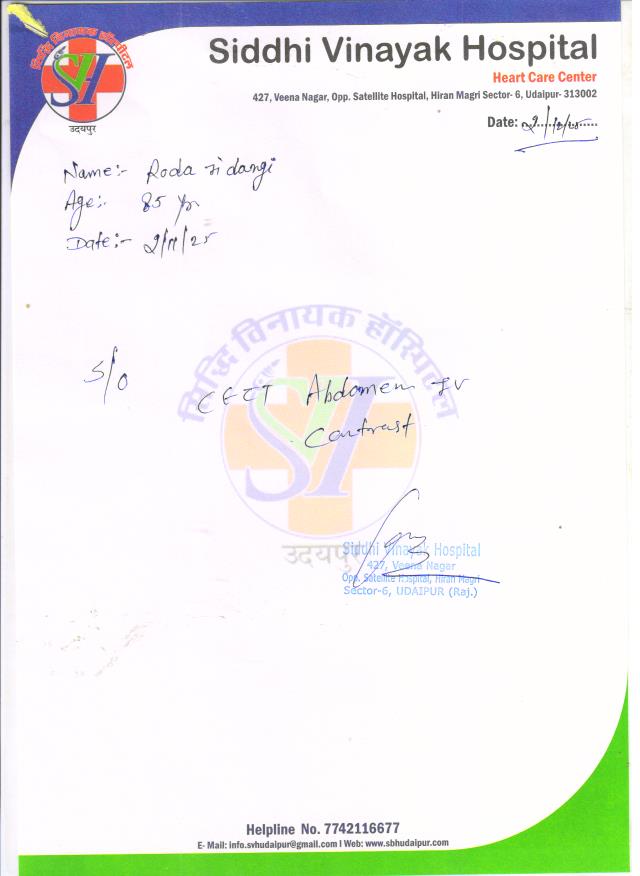 सिद्धि विनायक हॉस्पीटल
SVH
उदयपुर
Siddhi Vinayak Hospital
Heart Care Center
427, Veena Nagar, Opp. Satellite Hospital, Hiran Magri Sector- 6, Udaipur- 313002
Date: 2/12/25
Name:- Roda ji dangi
Age:- 85 yr
Date:- 2/11/25
सिद्धि विनायक हॉस्पिटल
SVH
उदयपुर
S/O
CECT Abdomen IV
Contrast
Siddhi Vinayak Hospital
427, Veena Nagar
Opp. Satellite Hospital, Hiran Magri
Sector-6, UDAIPUR (Raj.)
Helpline No. 7742116677
E- Mail: info.svhudaipur@gmail.com I Web: www.sbhudaipur.com